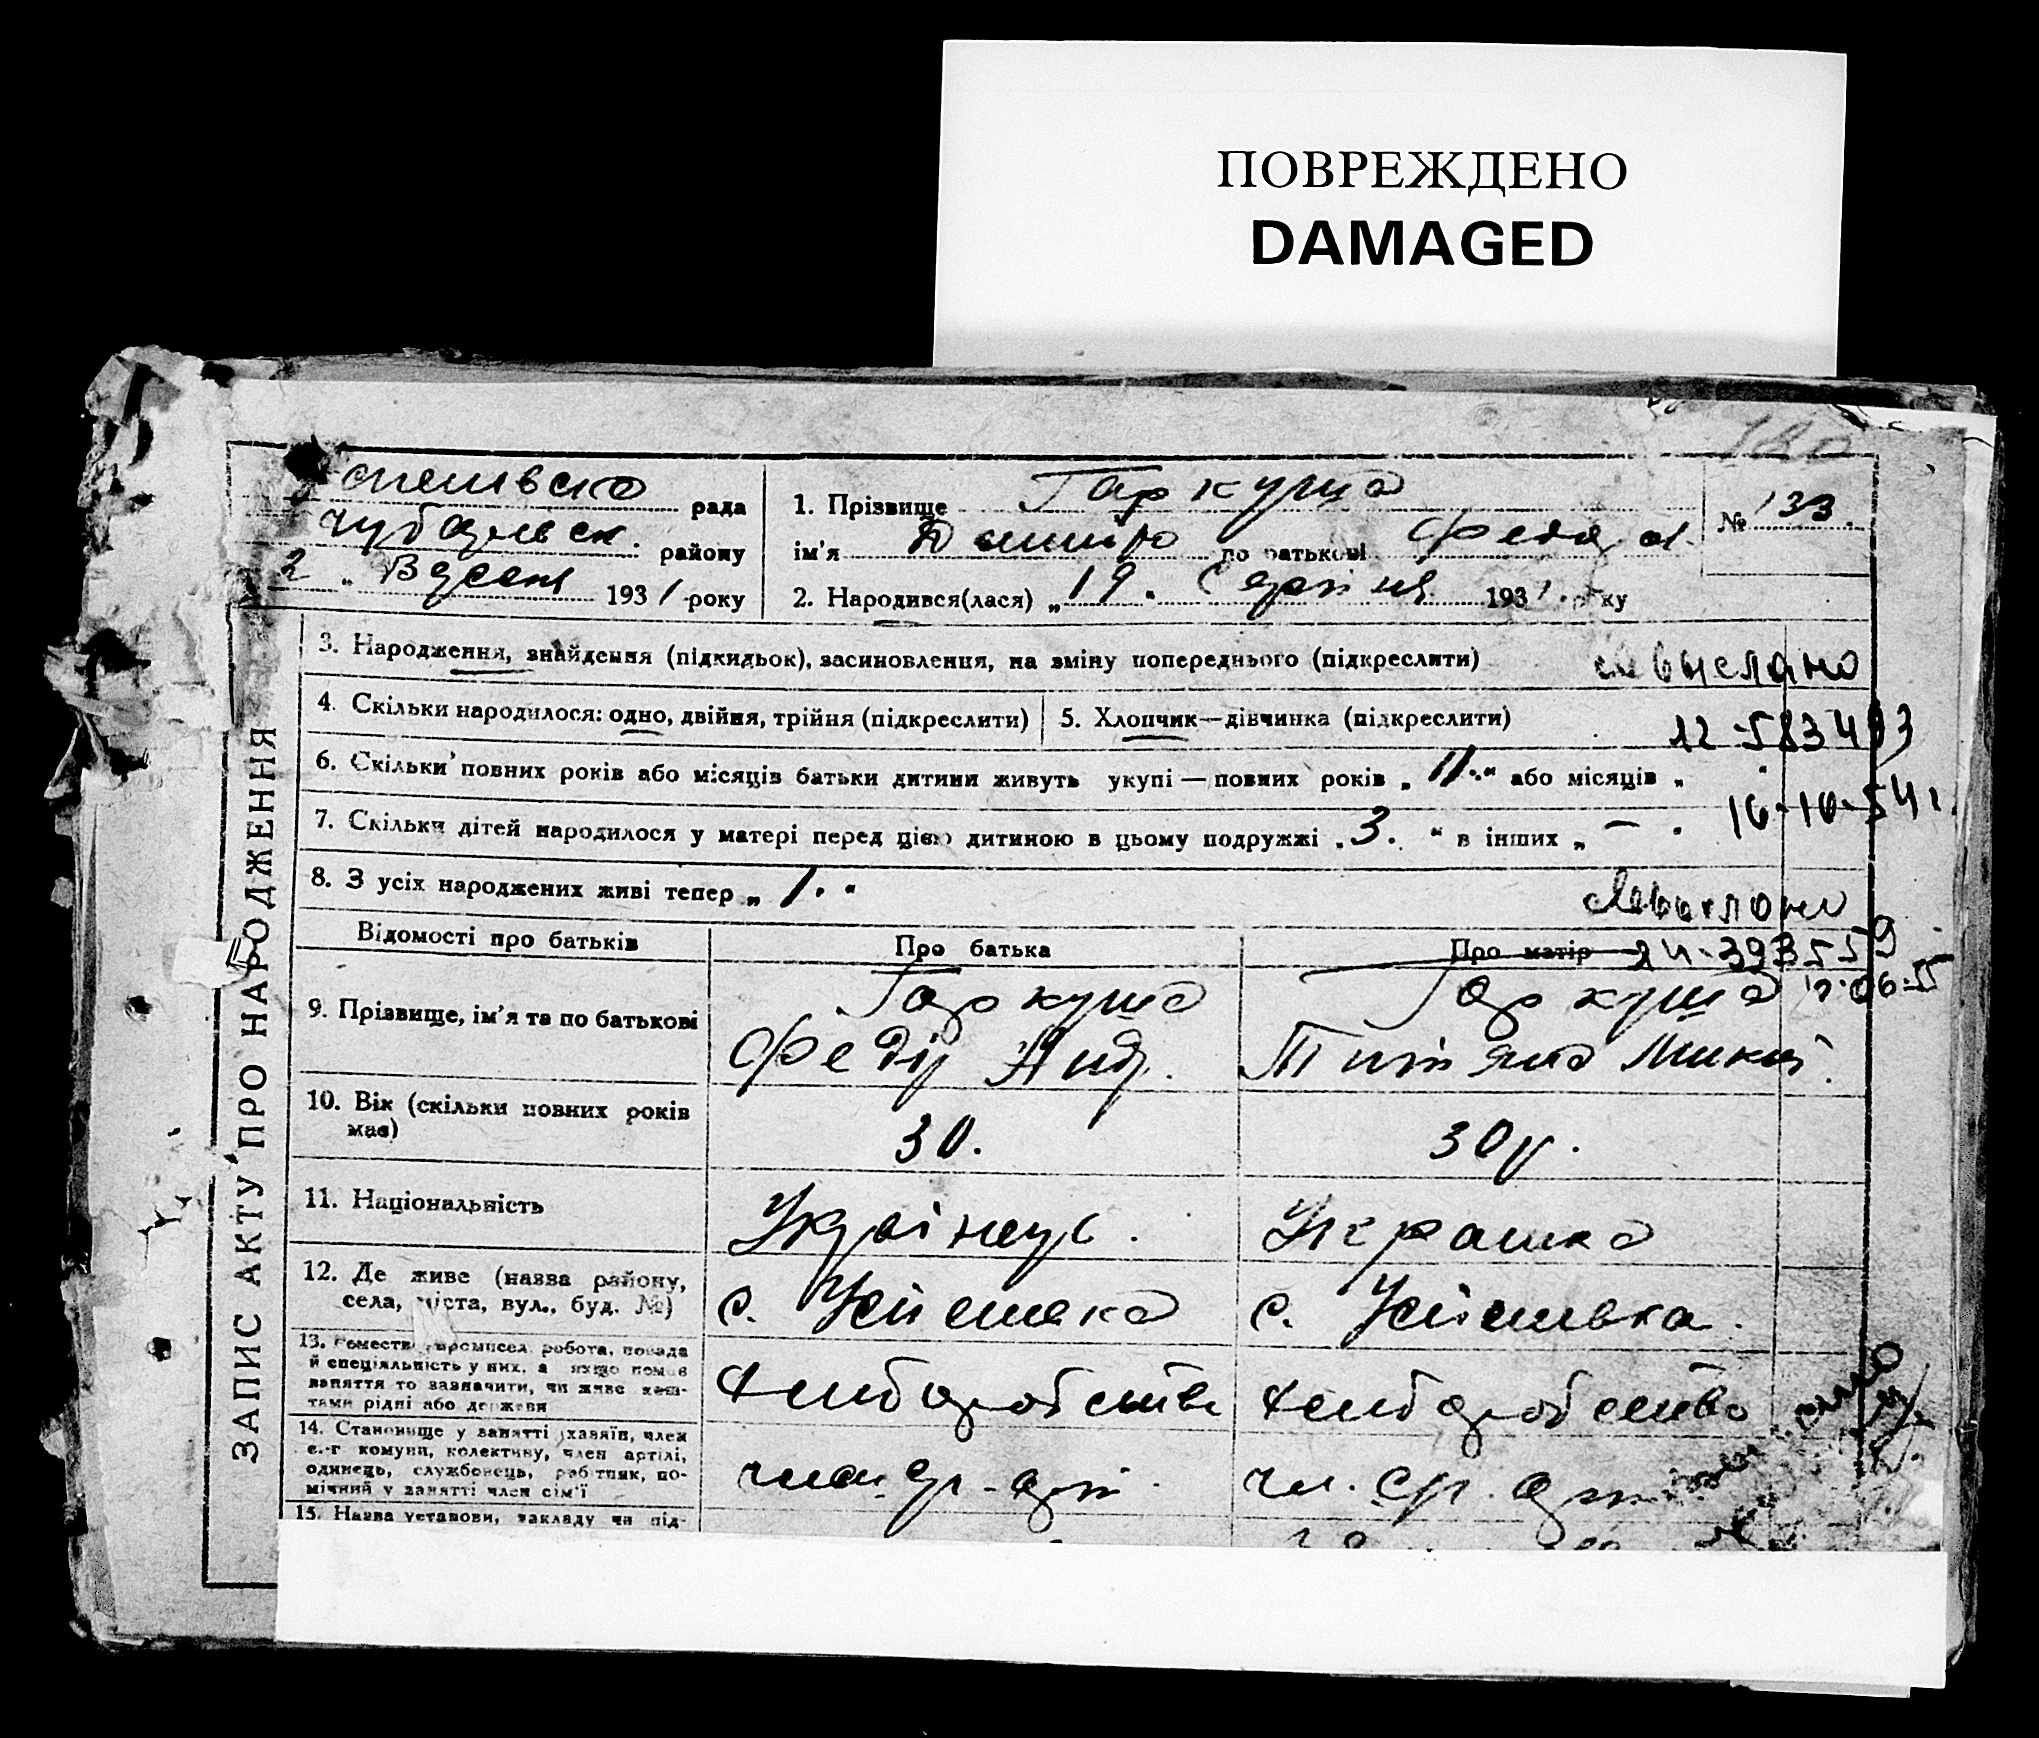 ПОВРЕЖДЕНО
DAMAGED
рада
району
2 „ Вересня 1931 року
1. Прізвище Гаркуша
ім'я Дмитро по батькові Федор.
2. Народився(лася) „ 19 “ Серпня 1931 року
№ 133.
ЗАПИС АКТУ ПРО НАРОДЖЕННЯ
3. Народження, знайдення (підкидьок), засиновлення, на зміну попереднього (підкреслити)
4. Скільки народилося: одно, двійня, трійня (підкреслити)
5. Хлопчик—дівчинка (підкреслити)
6. Скільки повних років або місяців батьки дитини живуть укупі — повних років „ 11. “ або місяців „
7. Скільки дітей народилося у матері перед цією дитиною в цьому подружжі „ 3. “ в інших „ —
16-10-54 г.
8. З усіх народжених живі тепер „ 1. “
Відомості про батьків
Про батька
Про матір
9. Прізвище, ім'я та по батькові
Гаркуша
Федір Анд.
Гаркуша
Тит'яна Микит.
10. Вік (скільки повних років має)
30.
30 р.
11. Національність
Украінець.
Украінка
12. Де живе (назва району,
села, міста, вул., буд. №)
с. Усішевка
с. Усішевка.
13. Ремество, промисел, робота, посада
й спеціяльність у них, а якщо немає
заняття то зазначити, чи живе кош-
тами рідні або держави
хлібаробство
хлібаробство
14. Становище у занятті хазяїн, член
с.-г комуни, колективу, член артілі,
одинець, службовець, робітник, по-
мічний у занятті член сім'ї
член ср. арт.
чл. ср. арт.
15. Назва установи, закладу чи під-